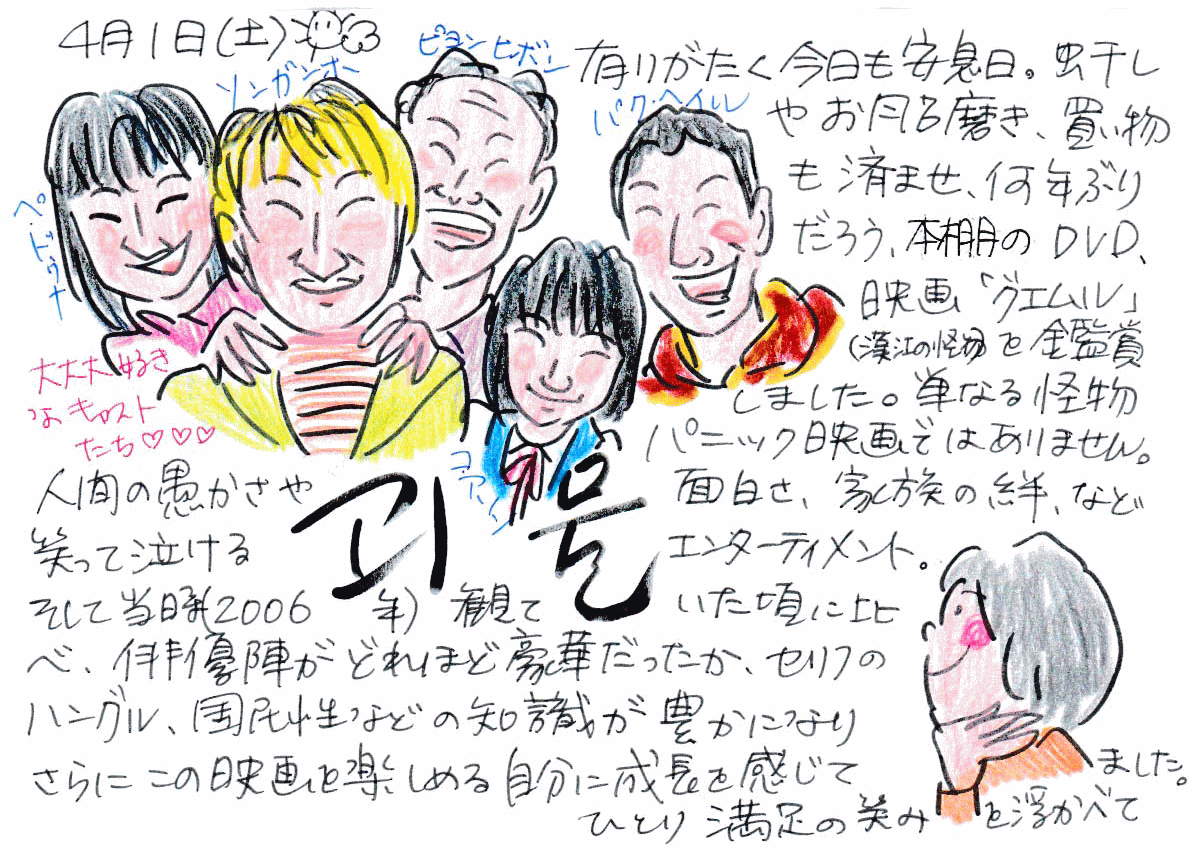 4月1日(土)
ピョン・ヒボン
ソン・ガンホ
パク・ヘイル
ペ・ドゥナ
コ・アソン
大大大好き
なキャスト
たち♡♡♡
有りがたく今日も安息日。虫干し
やお風呂磨き、買い物
も済ませ、何年ぶり
だろう、本棚のDVD、
映画「グエムル」
(漢江の怪物)を鑑賞
しました。単なる怪物
パニック映画ではありません。
人間の愚かさや 面白さ、家族の絆、など
笑って泣ける エンターティメント。
괴물
そして当時(2006年)観ていた頃に比
べ、俳優陣がどれほど豪華だったか、セリフの
ハングル、国民性などの知識が豊かになり
さらにこの映画を楽しめる自分に成長を感じて
ひとり満足の笑みを浮かべて
ました。